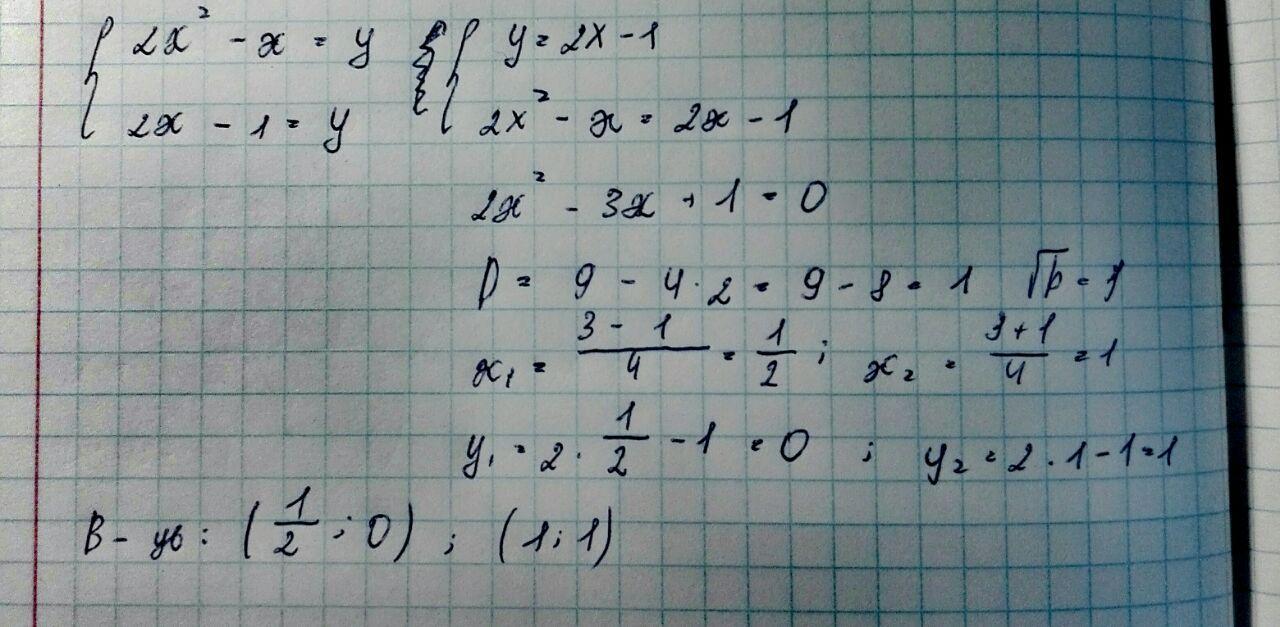 { 2x² - x = y { y = 2x - 1
2x - 1 = y 2x² - x = 2x - 1
2x² - 3x + 1 = 0
D = 9 - 4 · 2 = 9 - 8 = 1 √D = 1
x₁ = (3 - 1)/4 = 1/2 ; x₂ = (3 + 1)/4 = 1
y₁ = 2 · 1/2 - 1 = 0 ; y₂ = 2 · 1 - 1 = 1
В-дь : (1/2 ; 0) ; (1 ; 1)